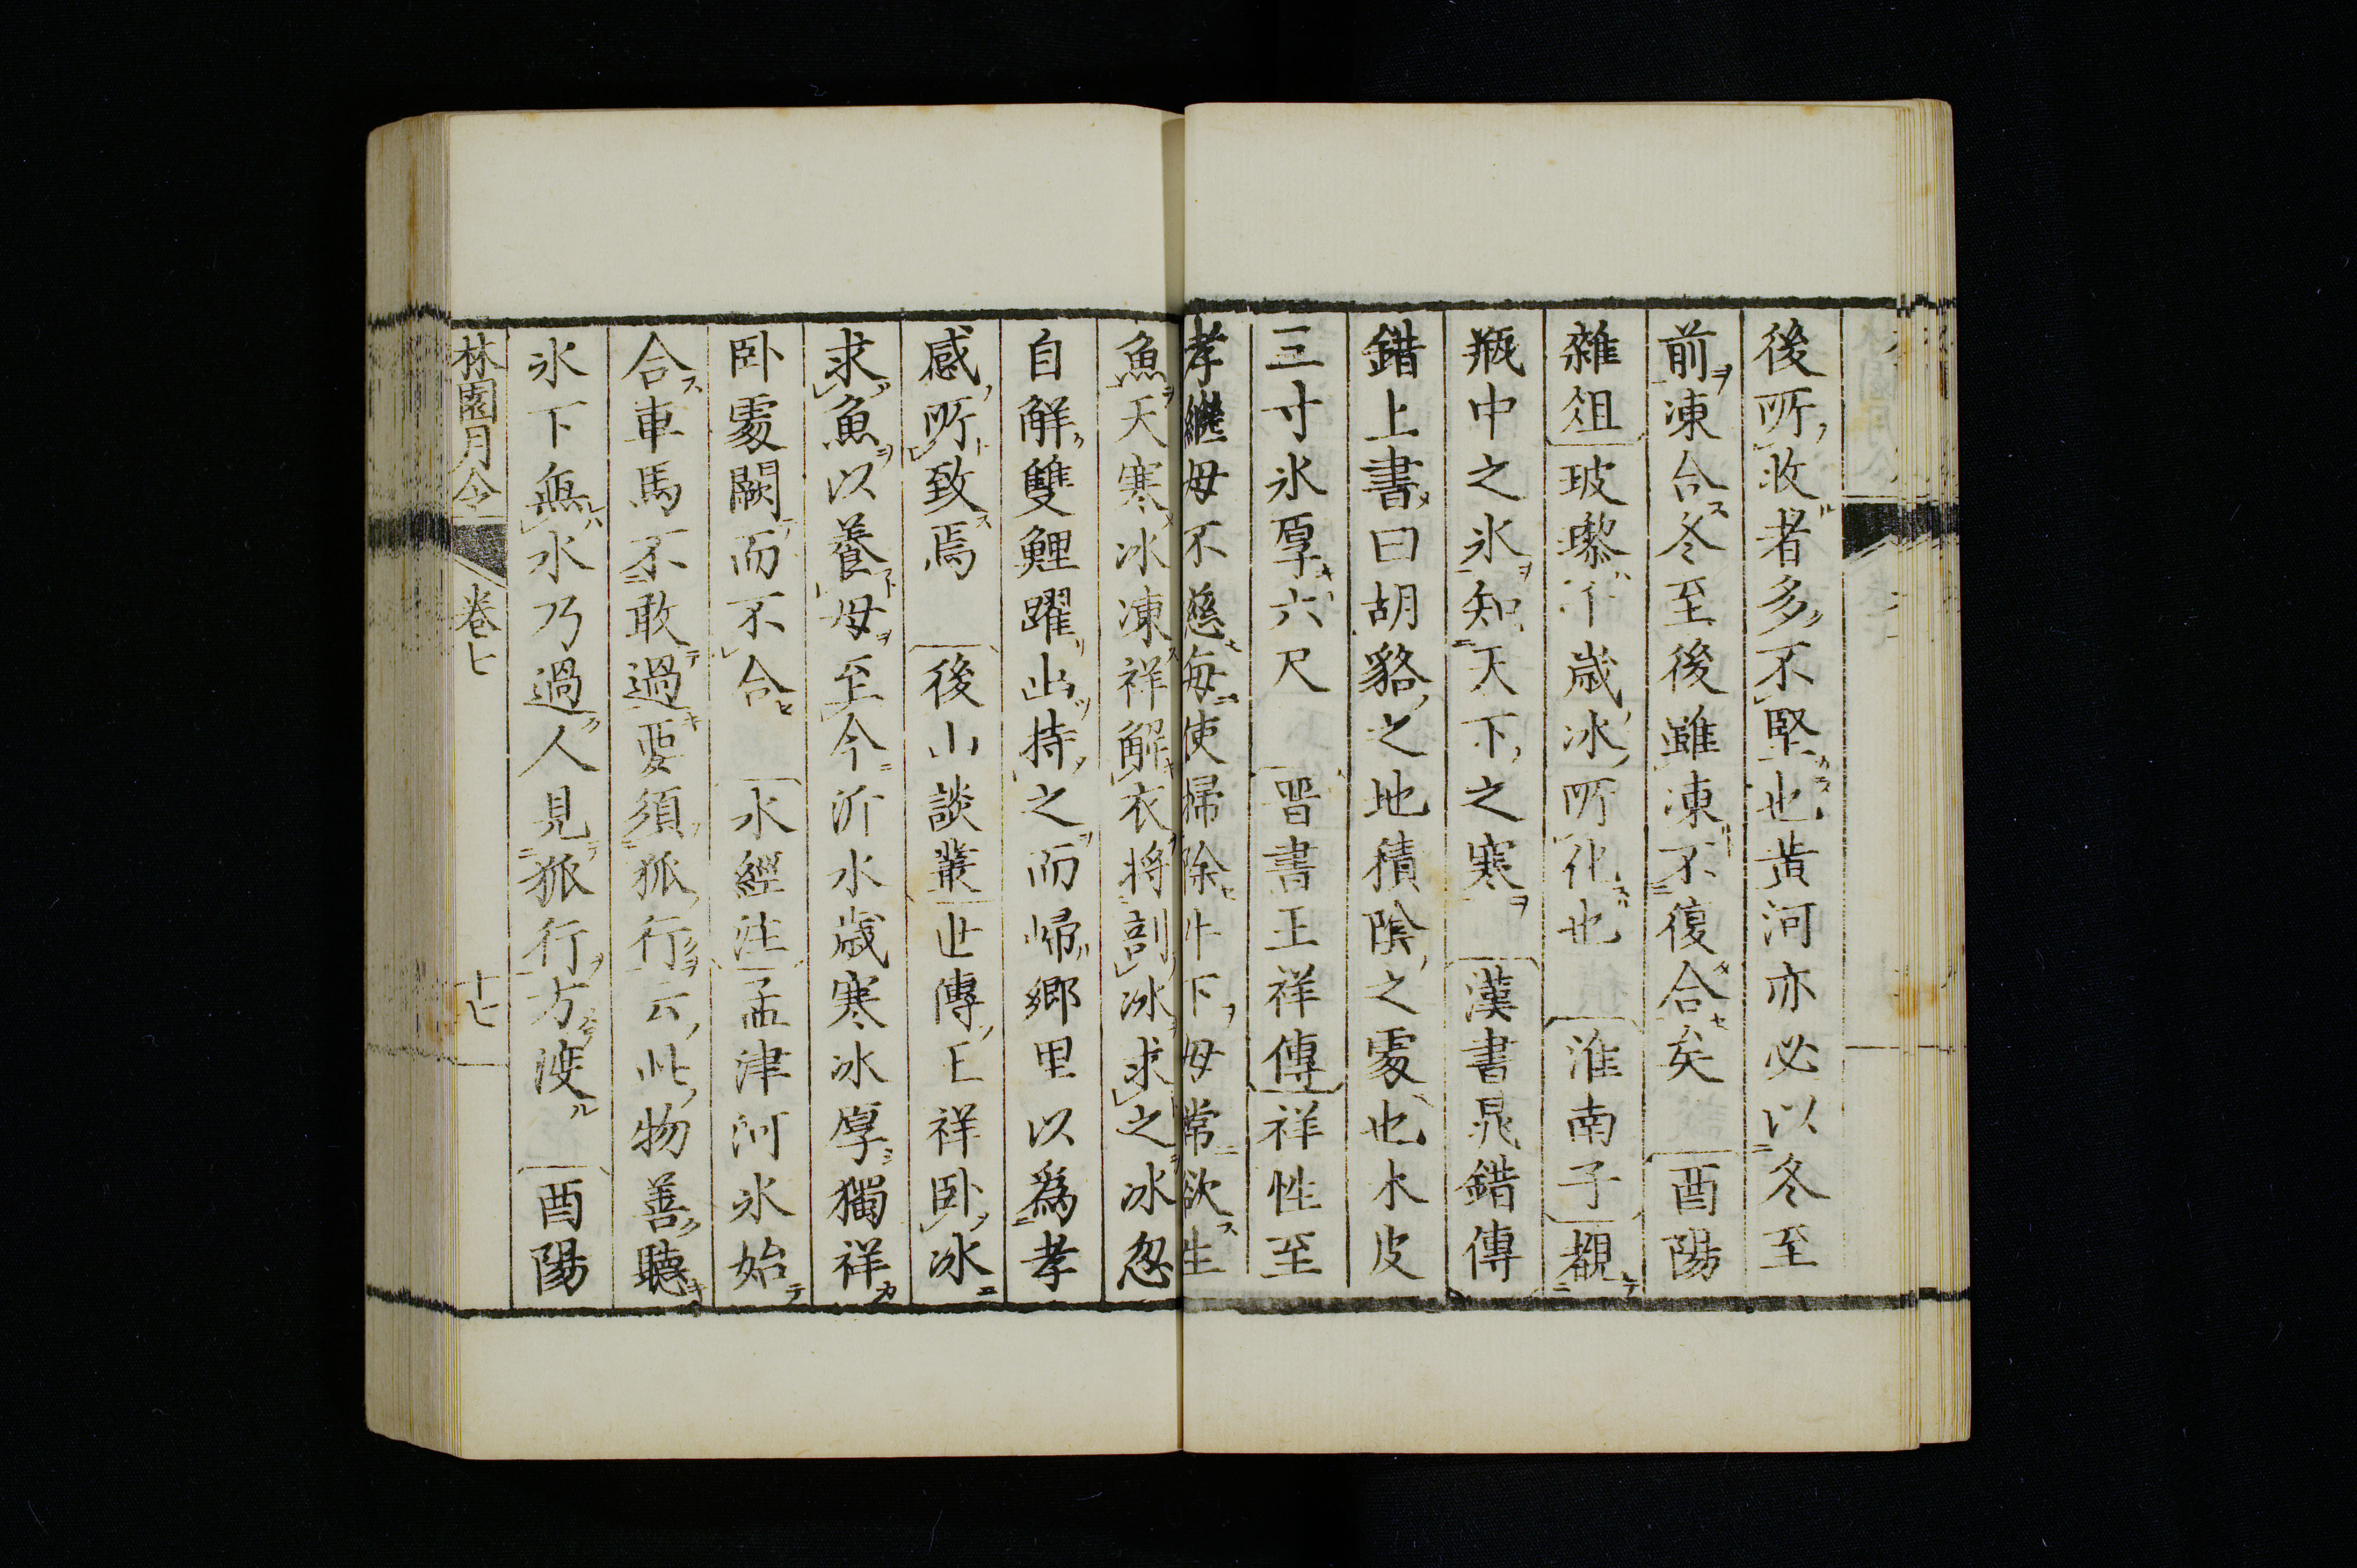 後所收者多不堅也黃河亦必以冬至
前凍合冬至後雖凍不復合矣 酉陽
雜俎玻瓈千歲冰所化也 淮南子覩
瓶中之氷知天下之寒 漢書晁錯傳
錯上書曰胡貉之地積陰之處也木皮
三寸氷厚六尺 晉書王祥傳祥性至
孝繼母不慈每使掃除牛下母常欲生
魚天寒冰凍祥解衣將剖冰求之冰忽
自解雙鯉躍出持之而歸鄉里以爲孝
感所致焉 後山談叢世傳王祥卧冰
求魚以養母至今沂水歲寒冰厚獨祥
卧處闕而不合 水經注孟津河氷始
合車馬不敢過要須狐行云此物善聽
氷下無水乃過人見狐行方渡 酉陽
林園月令 卷七 十七